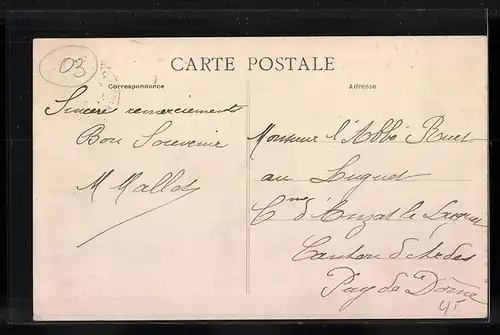 03
CARTE POSTALE
Correspondance
Adresse
Sincère remerciements
Bon Souvenir
M Mallot
Monsieur l'Abbé Ruet
au Luguet
Cne d'Anzat le Luguet
Canton d'Ardes
Puy de Dôme